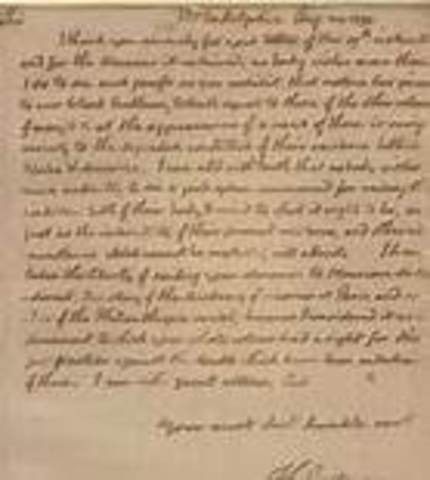 Philadelphia Aug. 30. 1791.
I thank you sincerely for your letter of the 19th instant
and for the Almanac it contained. no body wishes more than
I do to see such proofs as you exhibit, that nature has given
to our black brethren, talents equal to those of the other colours
of men, & that the appearance of a want of them is owing
merely to the degraded condition of their existence both in
Africa & America. I can add with truth that no body wishes
more ardently to see a good system commenced for raising the
condition both of their body & mind to what it ought to be, as
fast as the of their present existence, and other
circumstance which cannot be neglected, will admit. I have
taken the liberty of sending your almanac to Monsieur de
Secretary of the Academy of sciences at Paris, and
of the Philanthropic society, because I considered it as a
document to which your whole colour had a right for their
justification against the doubts which have been entertained
of them. I am with great esteem, Sir
Your most obedt. humble servt.